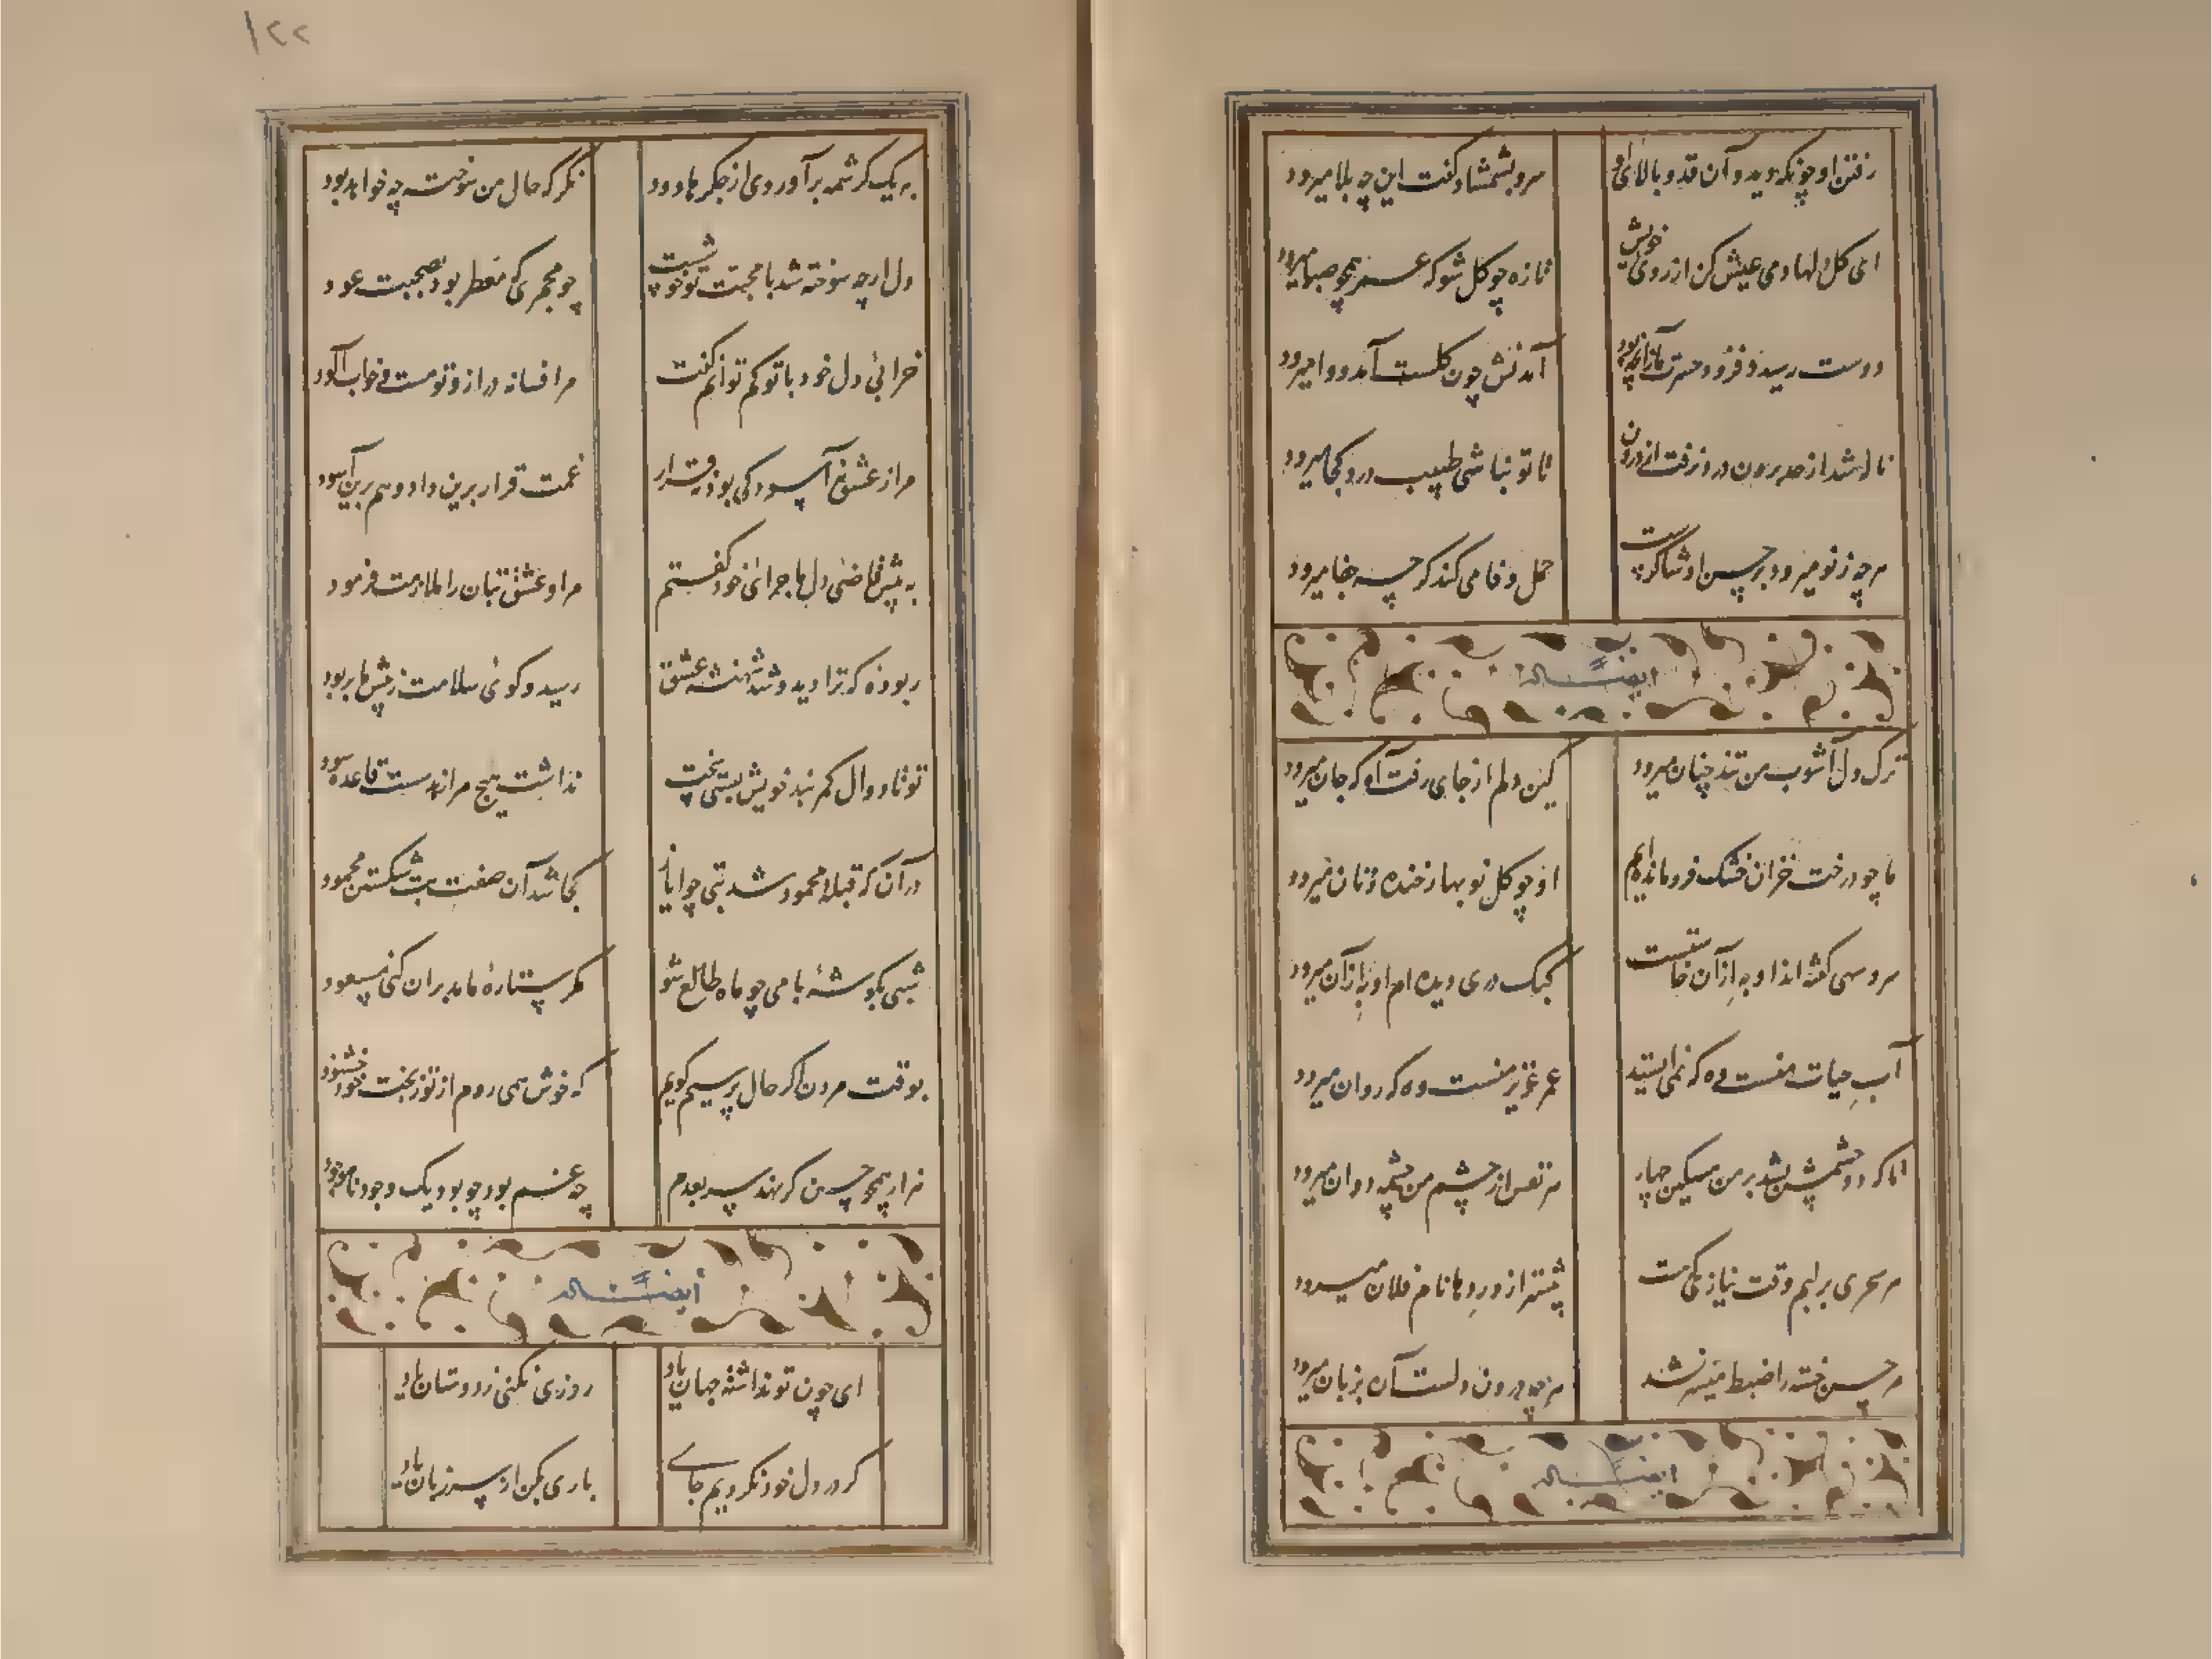 رفتن او چونکه دید و آن قد و بالای او
سرو بشمشاد گفت این چه بلا میرود
ای کل دلها دمی عیش کن از روی خویش
تازه چو کل شو که عمر همچو صبا میرود
دوست رسید و فزود حسرت
آمدنش چون کلست آمد و وا میرود
ناله شد از حد برون درد نرفت از درون
تا تو نباشی طبیب درد کجا میرود
هر چه ز تو میرود بر حسن او شاکرست
حمل وفا می کند کر چه جفا میرود
ایضاً له
ترک دل آشوب من تند چنان میرود
کین دلم از جای رفت آه که جان میرود
ما چو درخت خزان خشک فرو مانده ایم
او چو کل نوبهار خنده زنان میرود
سرو سهی کشته اند او به از آن خاستست
کبک دری دیده ام او به از آن میرود
آب حیات منست ده که نمی ایستد
عمر عزیز منست وه که روان میرود
تا که دو چشمش بشد بر من مسکین چهار
هر نفس از چشم من چشمه روان میرود
هر سحری بر لبم وقت نیازی که هست
پیشتر از وردها نام فلان میرود
هر حسن خسته را ضبط میسر نشد
هر چه درون دلست آن بزبان میرود
ایضاً له
۱۲۲
به یک کرشمه برآوردی از جکرها دود
نکر که حال من سوخته چه خواهد بود
دل ارچه سوخته شد با محبت تو خوشست
چو مجمری که معطر بود بصحبت عود
خرابی دل خود با تو کم توانم گفت
مرا فسانه دراز و تو مست خواب آلود
مرا ز عشق آسود کی بود و قرار
غمت قرار برین داد و هم برین آسود
به پیش قاضی دل ماجرای خود گفتم
مرا و عشق بتان را ملازمت فرمود
ربوده که ترا دید و شد شهنشه عشق
رسید و کوی سلامت ز پیش ما بربود
تو تا دوال کمربند خویش بستی چست
نداشت هیچ مرا زهدست قاعده سود
در آن که قبله محمود شد بتی چو ایاز
کجا شد آن صفت بت شکستن محمود
شبی بکوشه بامی چو ماه طالع شو
مکر ستاره ما بدبران کنی مسعود
بوقت مردن اکر حال پرسیم کویم
که خوش همی روم از تو ز بخت خود خشنود
هزار همچو حسن کر نهند سر بعدم
چه غم بود چو بود یک وجود نا موجود
ایضاً له
ای چون تو نداشته جهان یاد
روزی نکنی ز دوستان یاد
کر در دل خود نکردیم جای
باری بکن از سر زبان یاد